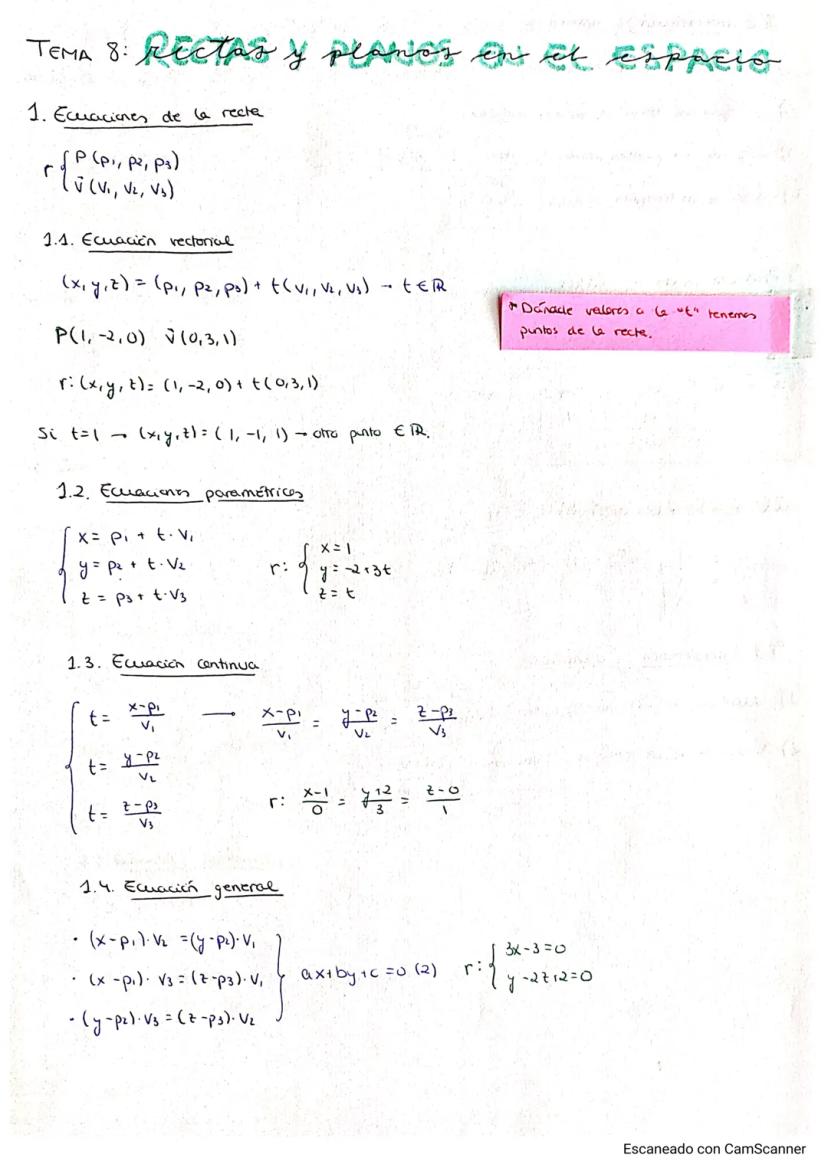 TEMA 8: RECTAS Y PLANOS EN EL ESPACIO
1. Ecuaciones de la recta
r { P (p1, p2, p3)
v⃗ (v1, v2, v3)
1.1. Ecuación vectorial
(x, y, z) = (p1, p2, p3) + t(v1, v2, v3) → t ∈ ℝ
* Dándole valores a la "t" tenemos
puntos de la recta.
P(1, -2, 0) v⃗ (0, 3, 1)
r: (x, y, z) = (1, -2, 0) + t(0, 3, 1)
Si t=1 → (x, y, z) = (1, -1, 1) → otro punto ∈ ℝ.
1.2. Ecuaciones paramétricas
{ x = p1 + t · v1
y = p2 + t · v2
z = p3 + t · v3
r: { x = 1
y = -2+3t
z = t
1.3. Ecuación continua
{ t = (x-p1)/v1 → (x-p1)/v1 = (y-p2)/v2 = (z-p3)/v3
t = (y-p2)/v2
t = (z-p3)/v3
r: (x-1)/0 = (y+2)/3 = (z-0)/1
1.4. Ecuación general
· (x-p1)·v2 = (y-p2)·v1
· (x-p1)·v3 = (z-p3)·v1
· (y-p2)·v3 = (z-p3)·v2
} ax+by+c = 0 (2)
r: { 3x-3=0
y-2z+2=0
Escaneado con CamScanner